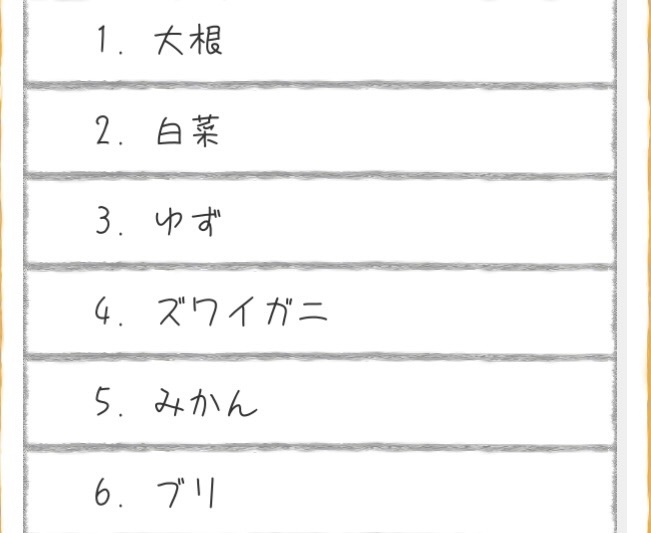 1. 大根
2. 白菜
3. ゆず
4. ズワイガニ
5. みかん
6. ブリ